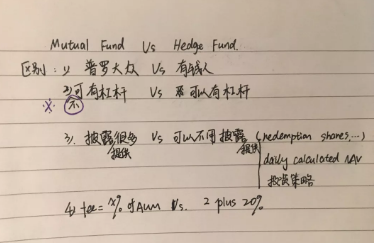 Mutual Fund Vs Hedge Fund.
区别: 1) 普罗大众 Vs 有钱人
2) 可有杠杆 Vs 可以有杠杆
※ 不
3). 披露很多 Vs 可以不用披露 (redemption shares, ...)
提供 提供 daily calculated NAV
投资策略
4) fee = x% of AUM Vs. 2 plus 20%